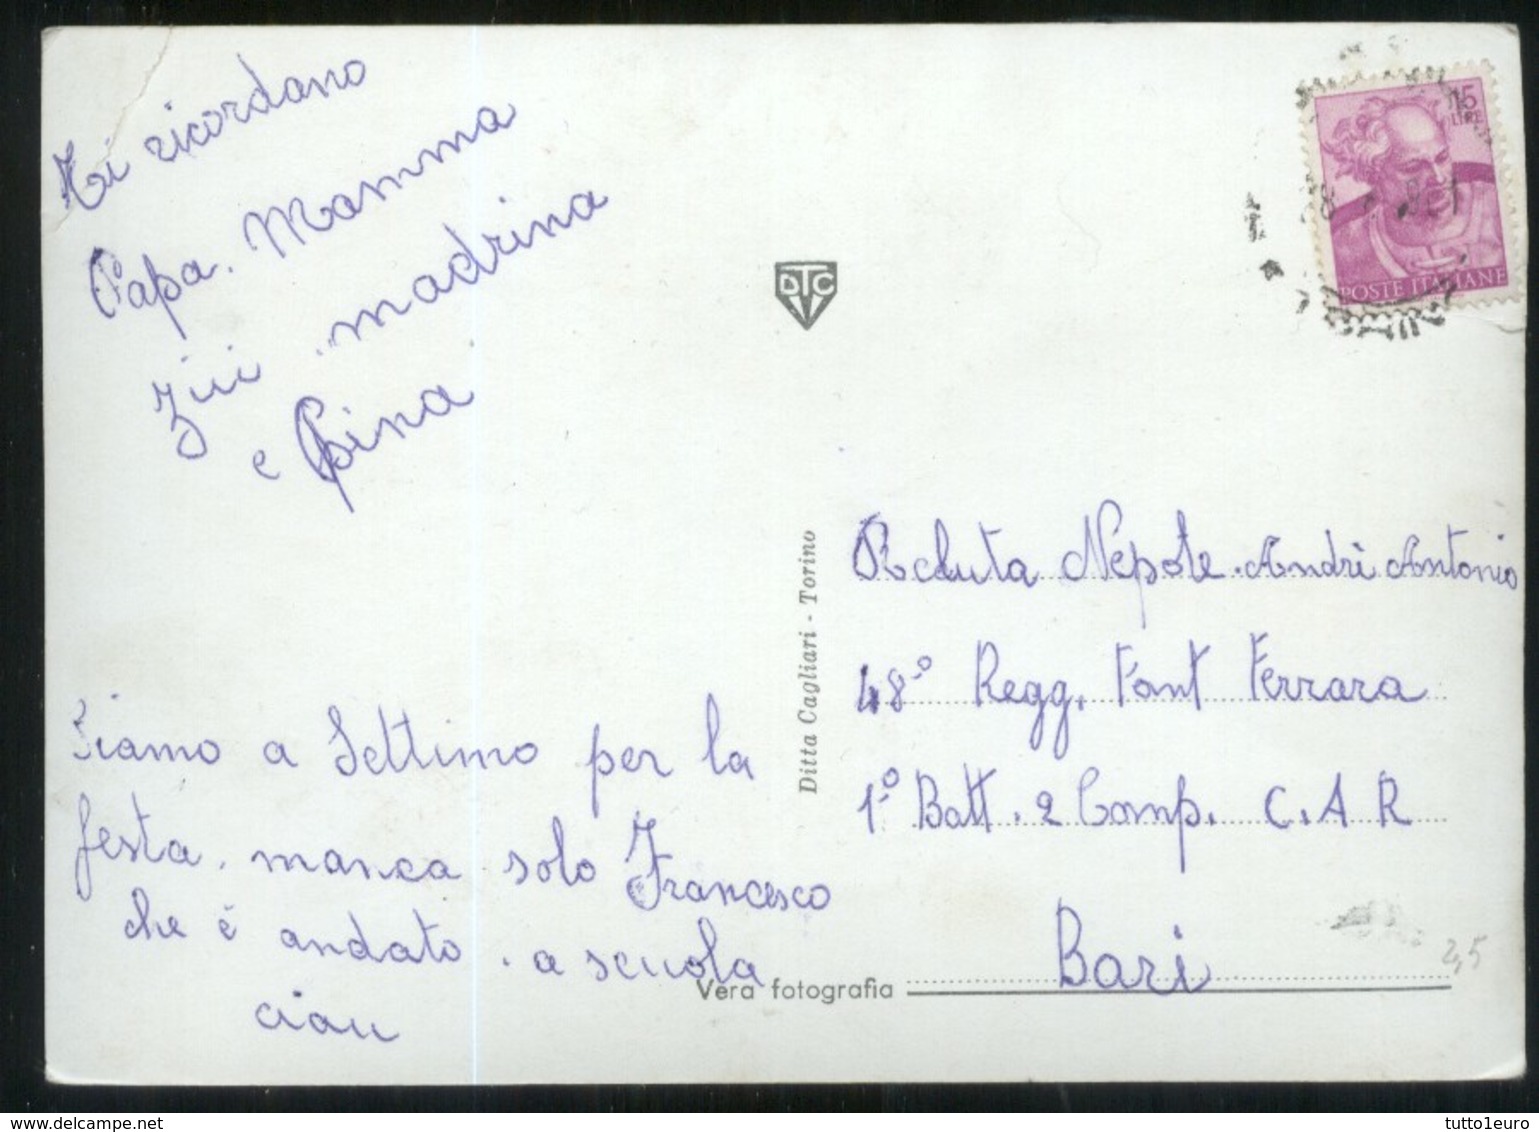 Ti ricordano
Papa. Mamma
zii. madrina
e Pina
Siamo a Settimo per la
festa. manca solo Francesco
che è andato. a scuola
ciau
DTC
Ditta Cagliari - Torino
Vera fotografia
15
LIRE
POSTE ITALIANE
Recluta Nepote. Andrì Antonio
48º Regg. Fant Ferrara
1º Batt. 2 Comp. C.A.R
Bari
2,5
www.delcampe.net
tutto1euro